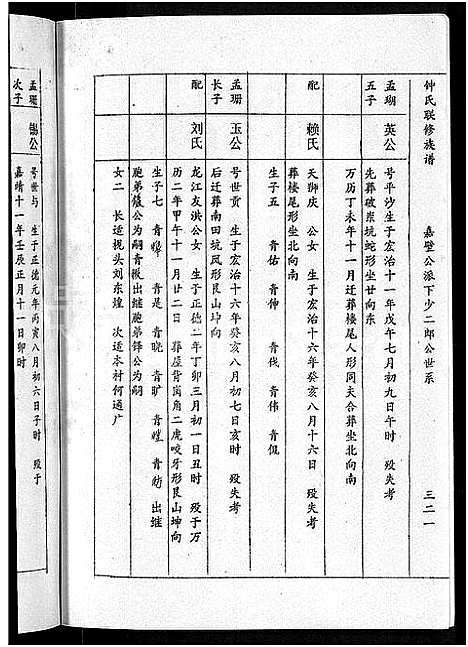 钟氏联修族谱 嘉璧公派下少二郎公世系 三二一
孟瑚五子 英公
号平沙生于宏治十一年戊午七月初九日午时 殁失考
先葬破岽坑蛇形坐甘向东
万历丁未年十一月迁葬楼尾人形同夫合葬坐北向南
配 赖氏
天狮庆 公女 生于宏治十六年癸亥八月十六日 殁失考
葬楼尾形坐北向南
生子五 青佑 青伸 青伐 青伟 青侃
孟珊长子 玉公
号世贡 生于宏治十六年癸亥八月初七日亥时 殁失考
后迁葬南田坑凤形艮山坤向
配 刘氏
龙江友洪公女 生于正德二年丁卯三月初一日丑时 殁于万
历二年甲午十一月廿二日 葬屋背岗角二虎咬牙形艮山坤向
生子七 青 青是 青晓 青旷 青 青 出继
胞弟公为嗣青 出继胞弟铎公为嗣
女二 长适视头刘东煌 次适本村何通广
孟珊次子 公
号世与 生于正德元年丙寅八月初六日子时 殁于
嘉靖十一年壬辰正月十一日卯时